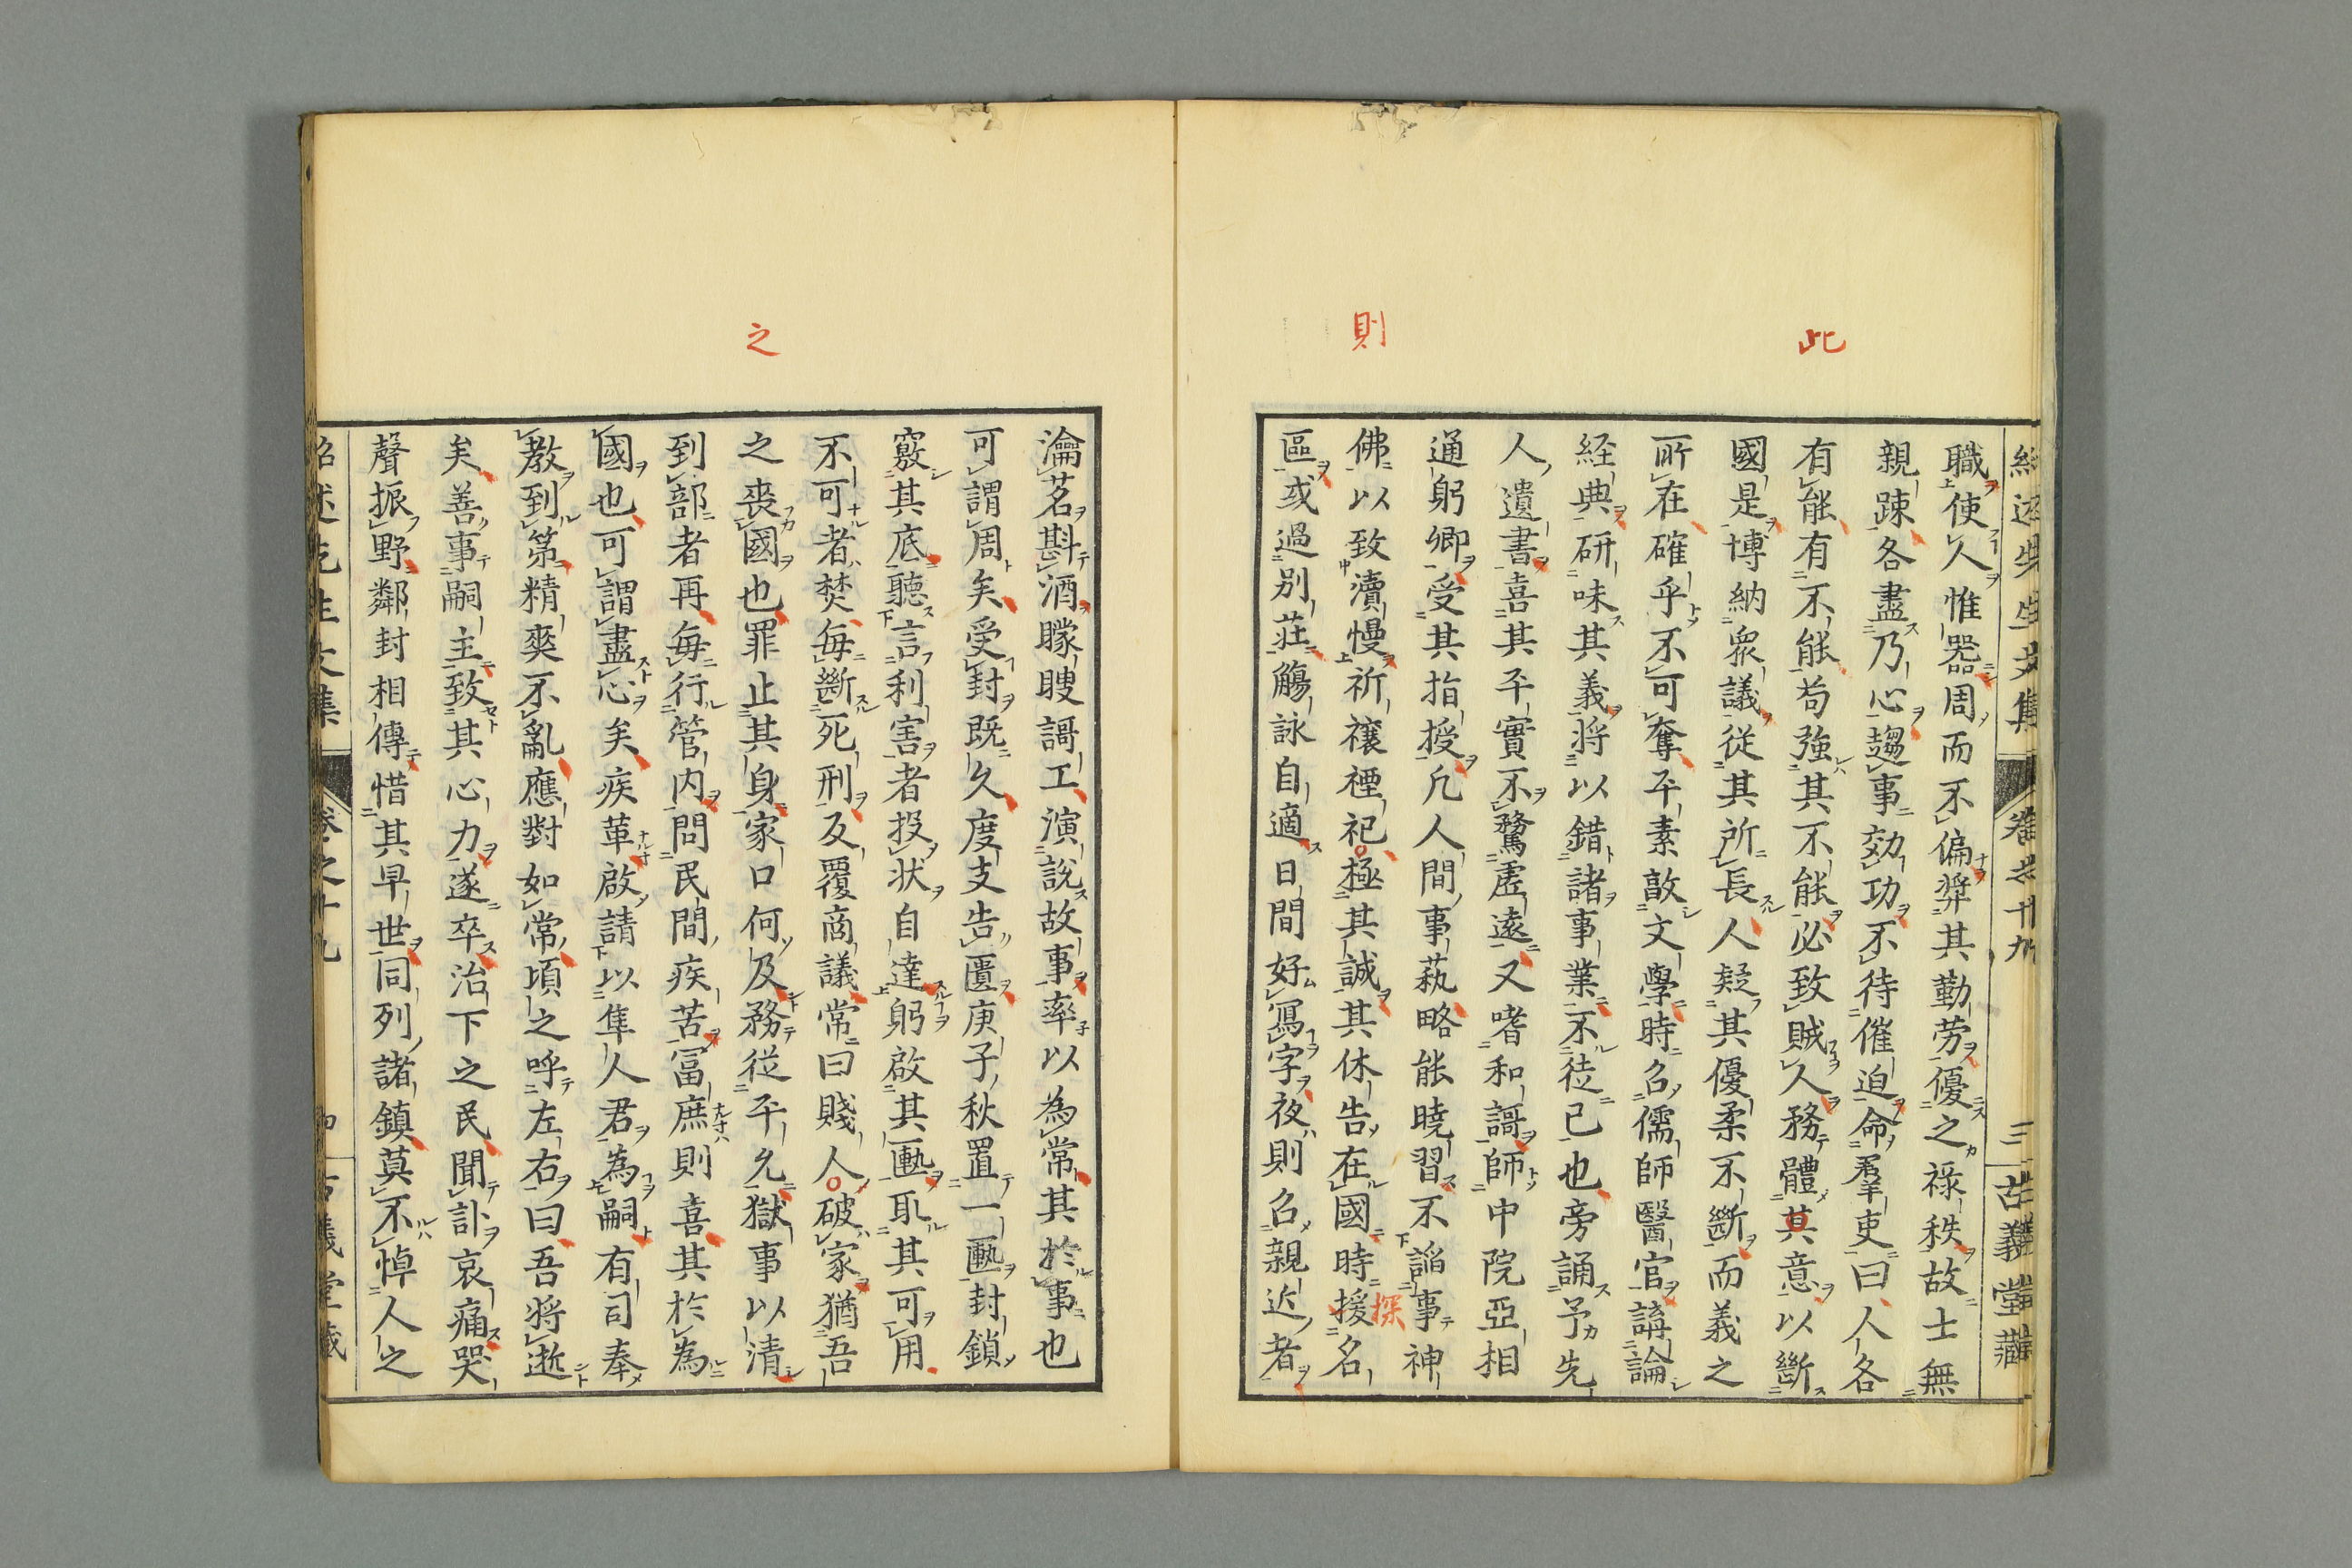 此
則
紹述先生文集 卷之十九 三 古義堂藏
職使人惟器周而不偏弊其勤労優之祿秩故士無
親踈各盡乃心趨事効功不待催迫命羣吏曰人各
有能有不能苟強其不能必致賊人務體其意以斷
國是博納衆議從其所長人疑其優柔不斷而義之
所在確乎不可奪平素敦文學時名儒師醫官講論
経典研味其義將以錯諸事業不徒已也旁誦予先
人遺書喜其平實不騖虛遠又嗜和謌師中院亞相
通躬卿受其指授凡人間事蓺略能曉習不諂事神
佛以致瀆慢祈禳禋祀極其誠其休告在國時援名
探
區或過別莊觴詠自適日間好寫字夜則名親近者
之
瀹茗斟酒矇瞍謌工演說故事率以為常其於事也
可謂周矣受封既久度支告匱庚子秋置一匭封鎖
竅其底聽言利害者投状自達躬啟其匭取其可用
不可者焚毎斷死刑反覆商議常曰賤人破家猶吾
之喪國也罪止其身家口何及務從平允獄事以清
到部者再毎行管内問民間疾苦冨庶則喜其於為
國也可謂盡心矣疾革啟請以隼人君為嗣有司奉
教到第精爽不亂應對如常頃之呼左右曰吾將逝
矣善事嗣主致其心力遂卒治下之民聞訃哀痛哭
聲振野鄰封相傳惜其早世同列諸鎮莫不悼人之
紹述先生文集 卷之十九 四 古義堂藏